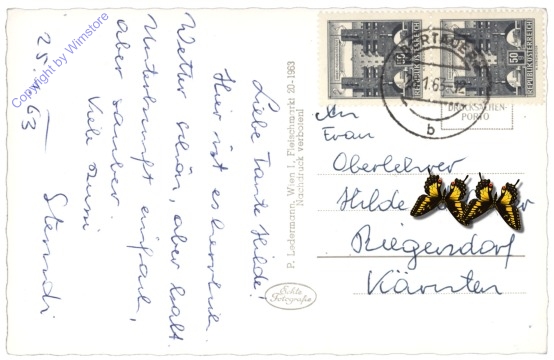 Copyright by Wimstore
25.1.63
Liebe Tante Hilde!
Hier ist es herrlich.
Wetter schön, aber kalt.
Unterkunft einfach,
aber sauber.
Viele
P. Ledermann, Wien I, Fleischmarkt 20-1963
Nachdruck verboten!
Echte
Fotografie
50
REPUBLIK ÖSTERREICH
50
REPUBLIK ÖSTERREICH
b
DRUCKSACHEN-
PORTO
An
Frau
Oberlehrer
Hilde
Riegersdorf
Kärnten